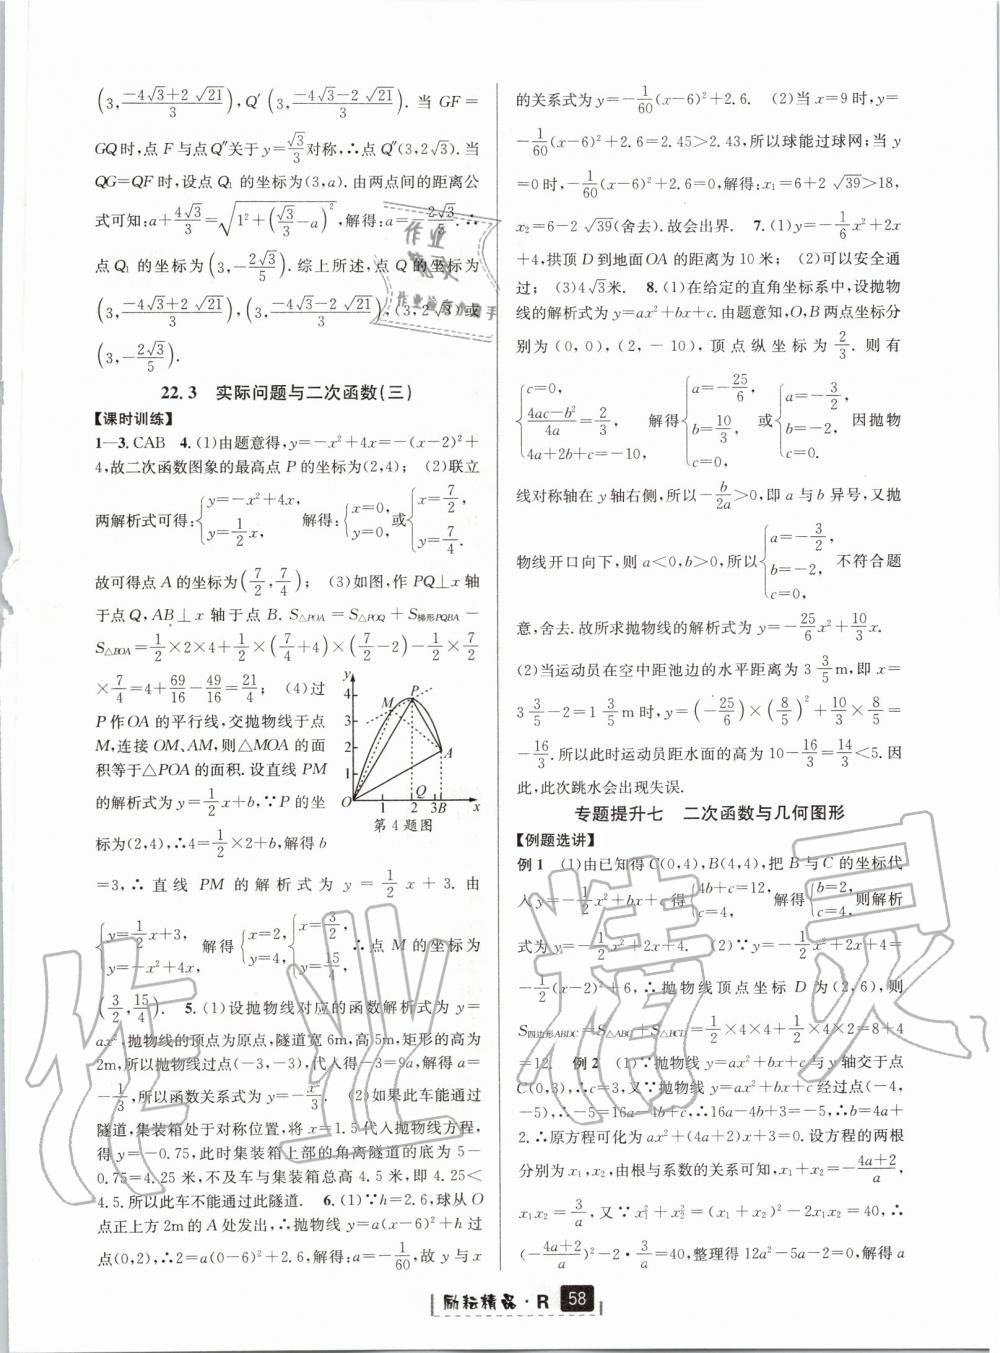 (3, (-4√3+2√21)/3), Q′(3, (-4√3-2√21)/3). 当 GF=
GQ时,点 F 与点 Q″关于 y=√3/3 对称,∴点 Q″(3,2√3). 当
QG=QF 时,设点 Q₁ 的坐标为(3,a). 由两点间的距离公
式可知:a+4√3/3=√(1²+(√3/3-a)²),解得:a=-2√3/5. ∴
点 Q₁ 的坐标为(3,-2√3/5). 综上所述,点 Q 的坐标为
(3,(-4√3+2√21)/3),(3,(-4√3-2√21)/3),(3,2√3)或
(3,-2√3/5).
22.3 实际问题与二次函数(三)
【课时训练】
1—3. CAB 4. (1)由题意得,y=-x²+4x=-(x-2)²+
4,故二次函数图象的最高点 P 的坐标为(2,4); (2)联立
两解析式可得:{y=-x²+4x, y=1/2x, 解得:{x=0, y=0, 或{x=7/2, y=7/4.
故可得点 A 的坐标为(7/2,7/4); (3)如图,作 PQ⊥x 轴
于点 Q,AB⊥x 轴于点 B. S△POA=S△POQ+S梯形PQBA-
S△BOA=1/2×2×4+1/2×(7/4+4)×(7/2-2)-1/2×7/2
×7/4=4+69/16-49/16=21/4; (4)过
P 作 OA 的平行线,交抛物线于点
M,连接 OM、AM,则△MOA 的面
积等于△POA 的面积. 设直线 PM
的解析式为 y=1/2x+b,∵P 的坐
标为(2,4),∴4=1/2×2+b,解得 b
y
4
3
2
1
O
M
P
A
Q
1 2 3B x
第 4 题图
=3,∴直线 PM 的解析式为 y=1/2x+3. 由
{y=1/2x+3, y=-x²+4x, 解得{x=2, y=4, {x=3/2, y=15/4. ∴点 M 的坐标为
(3/2,15/4). 5. (1)设抛物线对应的函数解析式为 y=
ax²,抛物线的顶点为原点,隧道宽 6m,高 5m,矩形的高为
2m,所以抛物线过点(-3,-3),代入得-3=9a,解得 a=
-1/3,所以函数关系式为 y=-x²/3. (2)如果此车能通过
隧道,集装箱处于对称位置,将 x=1.5 代入抛物线方程,
得 y=-0.75,此时集装箱上部的角离隧道的底为 5-
0.75=4.25 米,不及车与集装箱总高 4.5 米,即 4.25<
4.5. 所以此车不能通过此隧道. 6. (1)∵h=2.6,球从 O
点正上方 2m 的 A 处发出,∴抛物线 y=a(x-6)²+h 过
点(0,2),∴2=a(0-6)²+2.6,解得:a=-1/60,故 y 与 x
的关系式为 y=-1/60(x-6)²+2.6. (2)当 x=9 时,y=
-1/60(x-6)²+2.6=2.45>2.43,所以球能过球网;当 y
=0 时,-1/60(x-6)²+2.6=0,解得:x₁=6+2√39>18,
x₂=6-2√39(舍去). 故会出界. 7. (1)y=-1/6x²+2x
+4,拱顶 D 到地面 OA 的距离为 10 米; (2)可以安全通
过; (3)4√3米. 8. (1)在给定的直角坐标系中,设抛物
线的解析式为 y=ax²+bx+c. 由题意知,O,B 两点坐标分
别为(0,0),(2,-10),顶点纵坐标为2/3. 则有
{c=0, (4ac-b²)/4a=2/3, 4a+2b+c=-10, 解得{a=-25/6, b=10/3, c=0, 或{a=-3/2, b=-2, c=0, 因抛物
线对称轴在 y 轴右侧,所以-b/2a>0,即 a 与 b 异号,又抛
物线开口向下,则 a<0,b>0,所以{a=-3/2, b=-2, c=0, 不符合题
意,舍去. 故所求抛物线的解析式为 y=-25/6x²+10/3x.
(2)当运动员在空中距池边的水平距离为 3 3/5 m,即 x=
3 3/5-2=1 3/5 m时,y=(-25/6)×(8/5)²+10/3×8/5=
-16/3. 所以此时运动员距水面的高为 10-16/3=14/3<5. 因
此,此次跳水会出现失误.
专题提升七 二次函数与几何图形
【例题选讲】
例 1 (1)由已知得 C(0,4),B(4,4),把 B 与 C 的坐标代
入 y=-1/2x²+bx+c 得{4b+c=12, c=4, 解得{b=2, c=4, 则解析
式为 y=-1/2x²+2x+4. (2)∵y=-1/2x²+2x+4=
-1/2(x-2)²+6,∴抛物线顶点坐标 D 为(2,6),则
S四边形ABDC=S△ABC+S△BCD=1/2×4×4+1/2×4×2=8+4
=12. 例 2 (1)∵抛物线 y=ax²+bx+c 与 y 轴交于点
C(0,3),∴c=3,又∵抛物线 y=ax²+bx+c 经过点(-4,
-5),∴-5=16a-4b+c,∴16a-4b+3=-5,∴b=4a+
2. ∴原方程可化为 ax²+(4a+2)x+3=0. 设方程的两根
分别为 x₁,x₂,由根与系数的关系可知,x₁+x₂=-(4a+2)/a,
x₁x₂=3/a,又∵x₁²+x₂²=(x₁+x₂)²-2x₁x₂=40,∴
(-(4a+2)/a)²-2·3/a=40,整理得 12a²-5a-2=0,解得 a
励耘精品·R 58
作业精灵